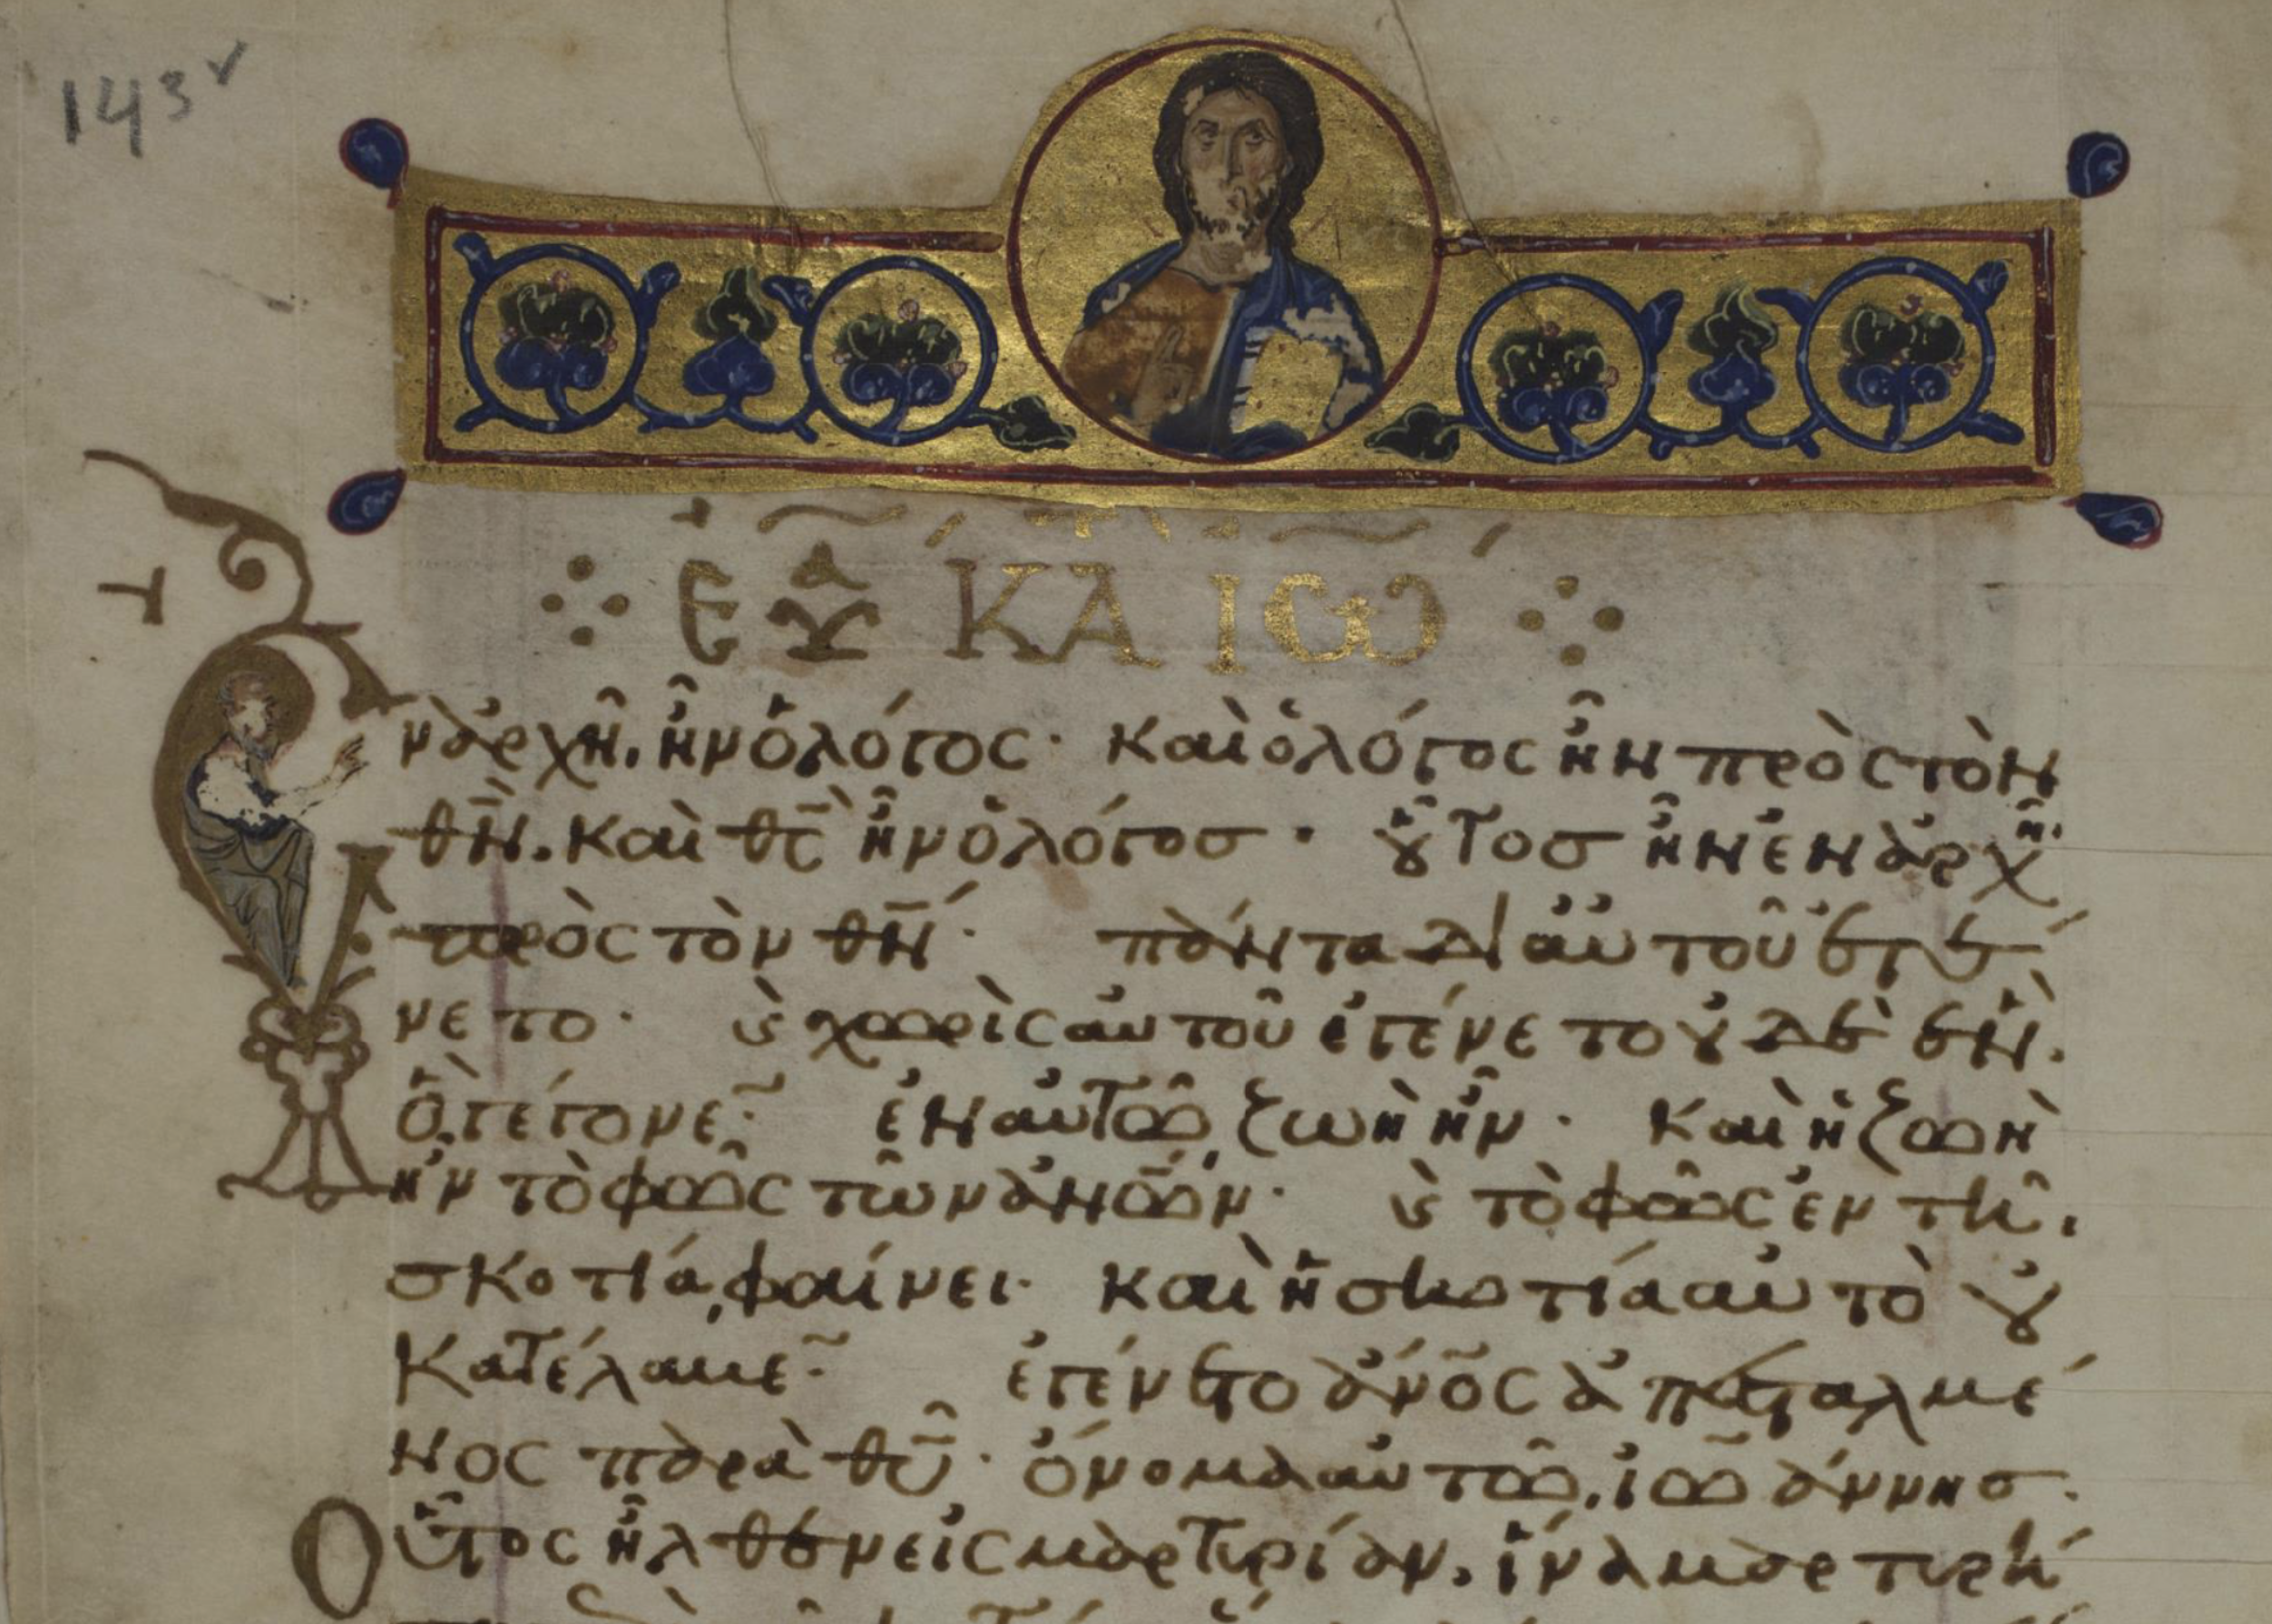 143v
ΕΥΑ ΚΑΤ ΙΩ
Ἐν ἀρχῆ, ἦν ὁ λόγος· καὶ ὁ λόγος ἦν πρὸς τὸν
θν̅. καὶ θς̅ ἦν ὁ λόγοσ· οὗτοσ ἦν ἐν ἀρχῆ
πρὸς τὸν θν̅· πάντα δι αὐτοῦ ἐγέ
νετο· ϗ χωρὶς αὐτοῦ ἐγένετο οὐδὲ ἕν.
ὃ γέγονε· ἐν αὐτῶ, ζωὴ ἦν· καὶ ἡ ζωὴ
ἦν τὸ φῶς τῶν ἀν̅ω̅ν· ϗ τὸ φῶς ἐν τῆ,
σκοτία, φαίνει· καὶ ἡ σκοτία αὐτὸ οὐ
κατέλαβε· ἐγένετο ἄν̅ο̅ς ἀπεσταλμέ
νος παρὰ θυ̅· ὄνομα αὐτῶ, ἰωάννησ·
Οὗτος ἦλθεν εἰς μαρτυρίαν, ἵνα μαρτυρή